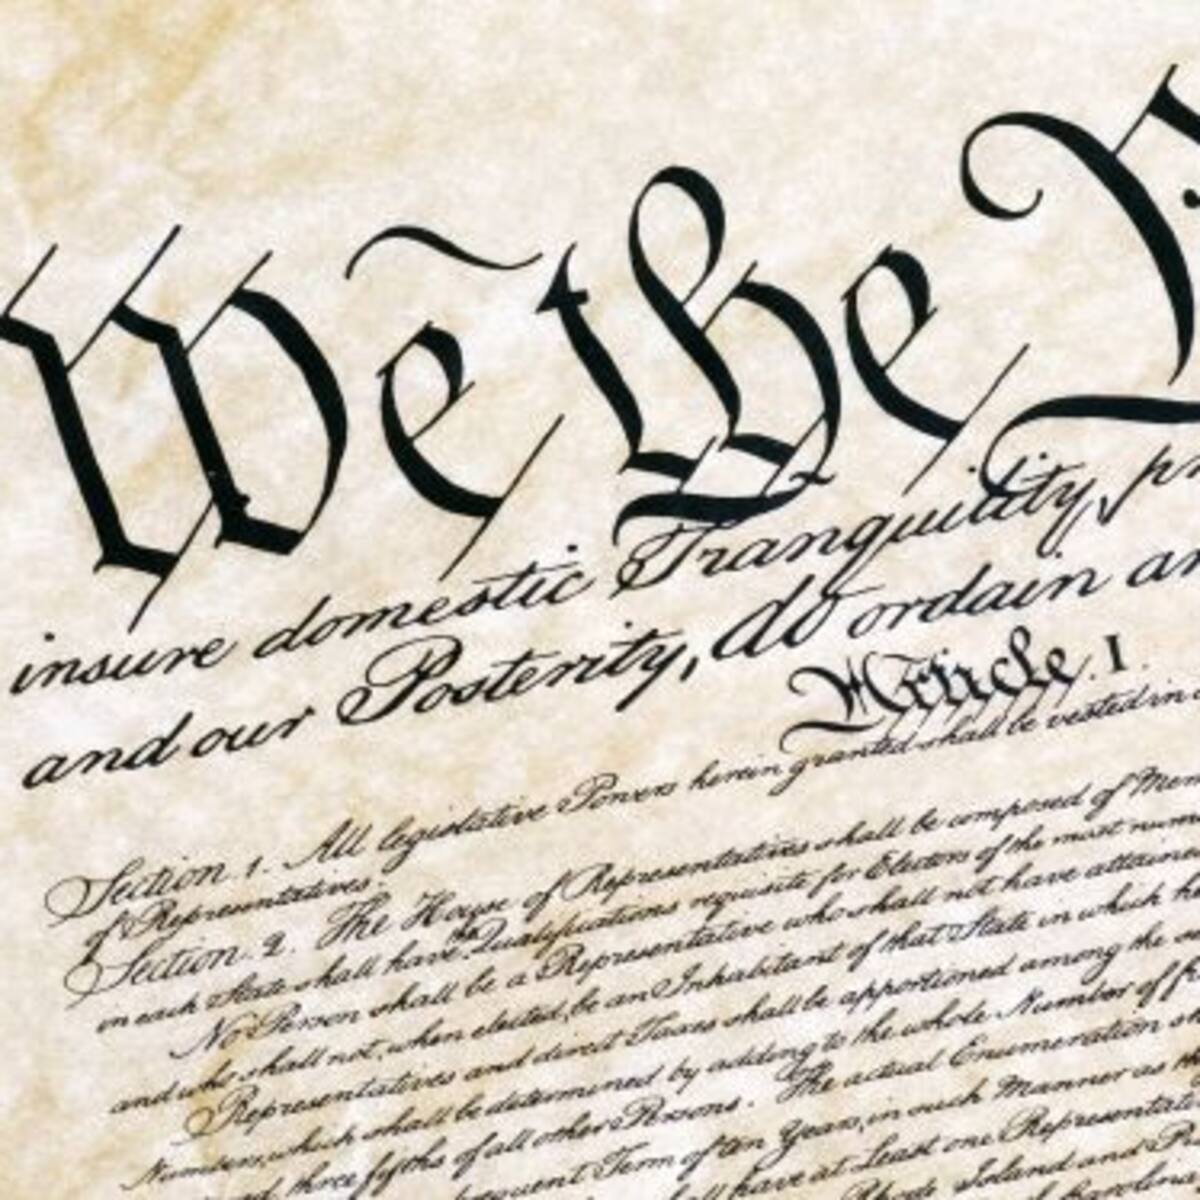 We the P
insure domestic Tranquility, pr
and our Posterity, do ordain an
Article. I.
Section. 1. All legislative Powers herein granted shall be vested in
of Representatives.
Section. 2. The House of Representatives shall be composed of Mem
in each State shall have the Qualifications requisite for Electors of the most num
No Person shall be a Representative who shall not have attained
and who shall not, when elected, be an Inhabitant of that State in which h
Representatives and direct Taxes shall be apportioned among the se
Numbers, which shall be determined by adding to the whole Number of f
three fifths of all other Persons. The actual Enumeration s
Term of ten Years, in such Manner as th
have at Least one Representat
Rhode Island and P